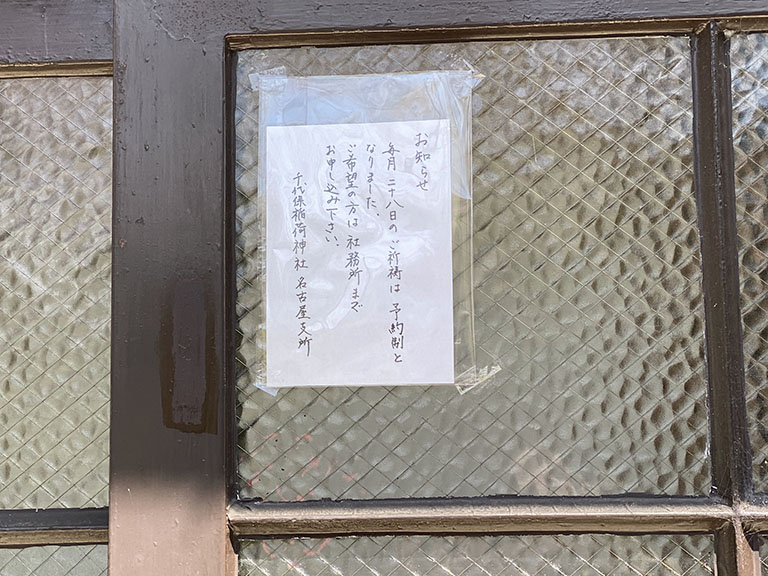 お知らせ
毎月二十八日のご祈祷は予約制と
なりました。
ご希望の方は社務所まで
お申し込み下さい。
千代保稲荷神社 名古屋支所